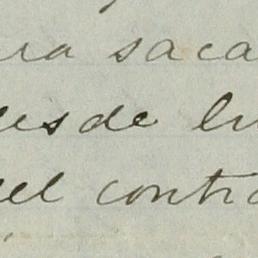 ra saca
desde lu
el contra